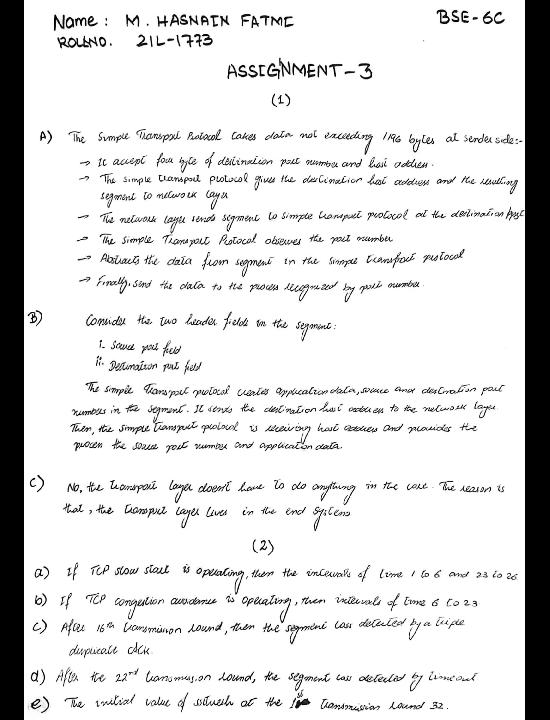 Name : M. HASNAIN FATMI BSE-6C
ROLLNO. 21L-1773
ASSIGNMENT-3
(1)
A) The Simple Transport Protocol takes data not exceeding 1196 bytes at sender side:-
→ It accept four byte of destination port number and host address.
→ The simple transport protocol gives the destination host address and the resulting
segment to network layer
→ The network layer sends segment to simple transport protocol at the destination host
→ The Simple Transport Protocol observes the port number
→ Abstracts the data from segment in the simple transport protocol
→ Finally, send the data to the process recognized by port number.
B) Consider the two header fields in the segment:
i- Source port field
ii- Destination port field
The simple transport protocol creates application data, source and destination port
numbers in the segment. It sends the destination host address to the network layer.
Then, the simple transport protocol is receiving host address and provides the
process the source port number and application data.
C) No, the transport layer doesn't have to do anything in the core. The reason is
that, the transport layer lives in the end systems
(2)
a) If TCP slow start is operating, then the intervals of time 1 to 6 and 23 to 26
b) If TCP congestion avoidance is operating, then intervals of time 6 to 23
c) After 16th transmission round, then the segment loss detected by a triple
duplicate ACK.
d) After the 22nd transmission round, the segment loss detected by timeout
e) The initial value of ssthresh at the 1st transmission round 32.